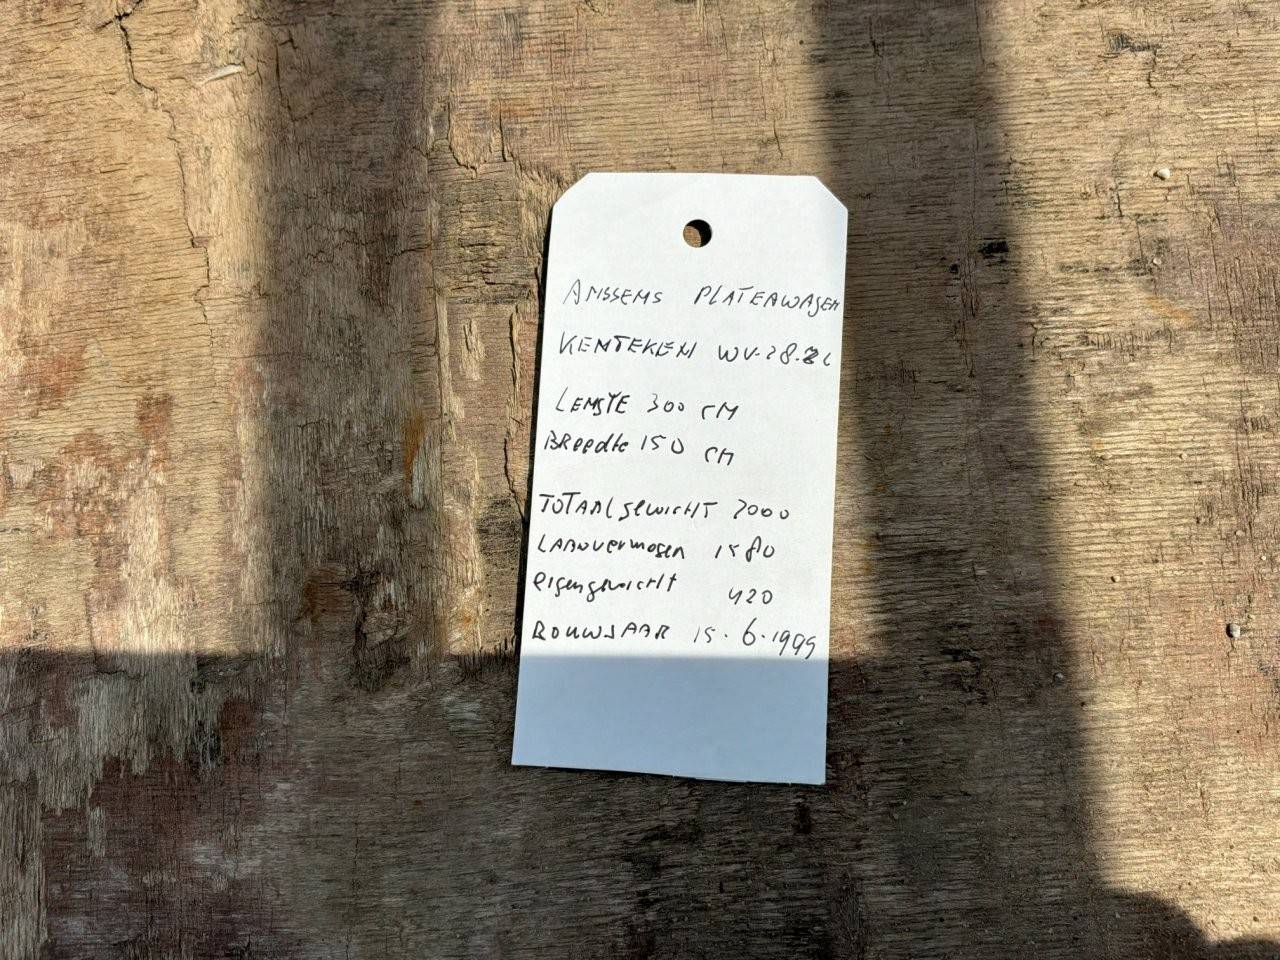 ANSSEMS PLATEAWAGEN
KENTEKEN WV-28-ZL
LENGTE 300 CM
BReedte 150 CM
TOTAAL gewicHT 2000
LAADVermogen 1580
eigengewicht 420
BOUWJAAR 15-6-1999